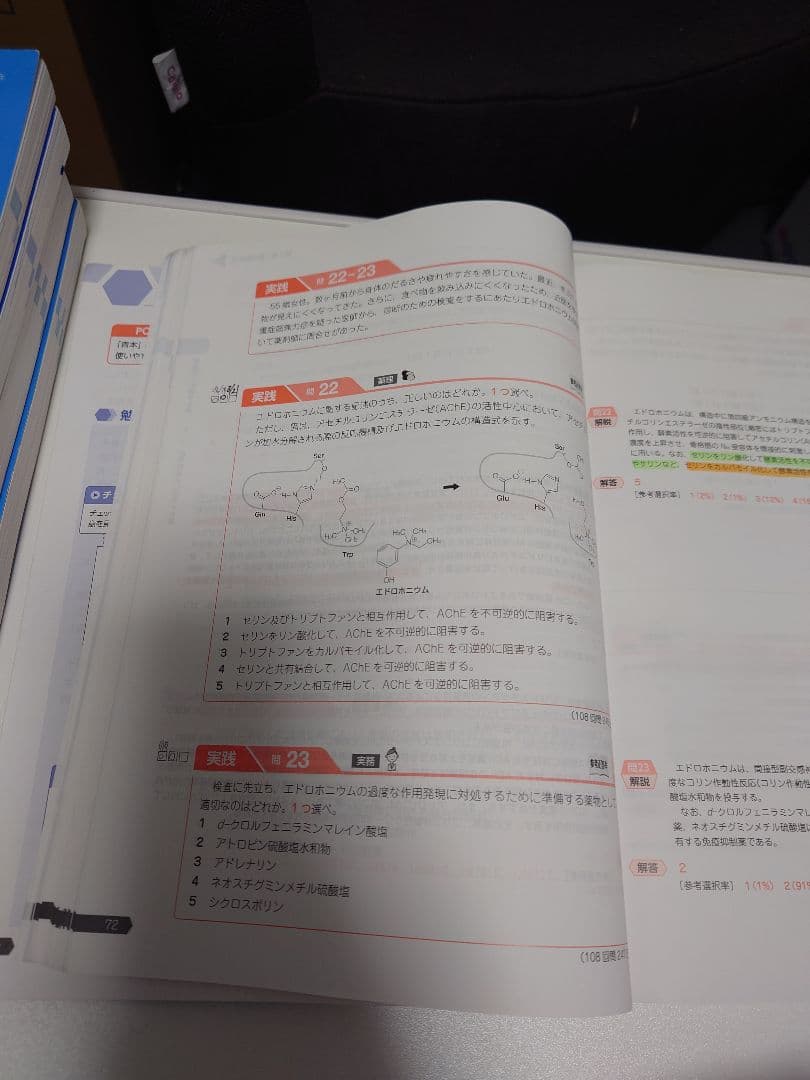 実践 問 22~23
55歳女性。数ヶ月前から身体のだるさや疲れやすさを感じていた。最近、
物が見えにくくなってきた。さらに、食べ物を飲み込みにくくなったため、
重症筋無力症を疑った医師から、診断のための検査をするにあたりエドロホニウム
いて薬剤師に問合せがあった。
実践 問 22 薬理
エドロホニウムに関する記述のうち、正しいのはどれか。1つ選べ。
ただし、図は、アセチルコリンエステラーゼ(AChE)の活性中心において、アセ
ンが加水分解される際の反応機構及びエドロホニウムの構造式を示す。
Ser
Gln
His
Trp
Ser
Glu
His
H₃C
OH
エドロホニウム
1 セリン及びトリプトファンと相互作用して、AChEを不可逆的に阻害する。
2 セリンをリン酸化して、AChEを不可逆的に阻害する。
3 トリプトファンをカルバモイル化して、AChEを可逆的に阻害する。
4 セリンと共有結合して、AChEを可逆的に阻害する。
5 トリプトファンと相互作用して、AChEを可逆的に阻害する。
(108回問
実践 問 23 実務
検査に先立ち、エドロホニウムの過度な作用発現に対処するために準備する薬物とし
適切なのはどれか。1つ選べ。
1 d-クロルフェニラミンマレイン酸塩
2 アトロピン硫酸塩水和物
3 アドレナリン
4 ネオスチグミンメチル硫酸塩
5 シクロスポリン
(108回問
72
問22
解説
エドロホニウムは、構造中に第四級アンモニウム構造を
チルコリンエステラーゼの陰性部位(厳密にはトリプトフ
作用し、酵素活性を可逆的に阻害してアセチルコリン
濃度を上昇させ、骨格筋の
に用いる。なお、セリンをリン酸化して酵素活性を不可
やサリンなど、セリンをカルバモイル化して酵素活性
解答 5
[参考選択率] 1(2%) 2(1%) 3(12%)
問23
解説
エドロホニウムは、間接型副交感神
度なコリン作動性反応(コリン作動性
酸塩水和物を投与する。
なお、d-クロルフェニラミンマレ
薬、ネオスチグミンメチル硫酸塩に
有する免疫抑制薬である。
解答 2
[参考選択率] 1(1%) 2(91%